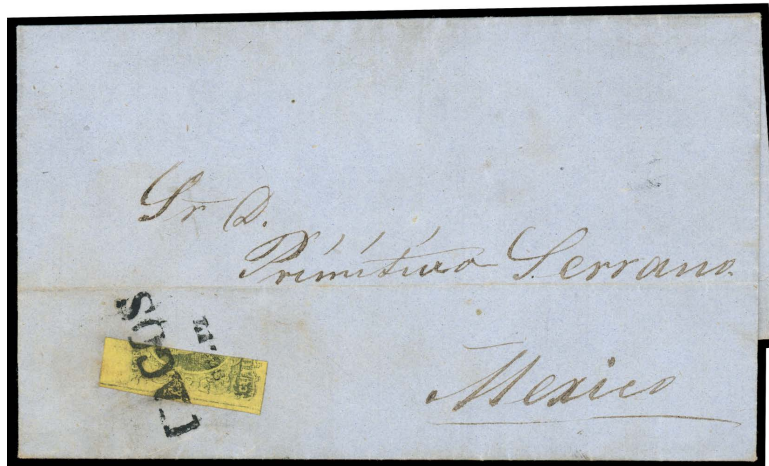 Sr D.
Primitivo Serrano
Mexico
LAGOS